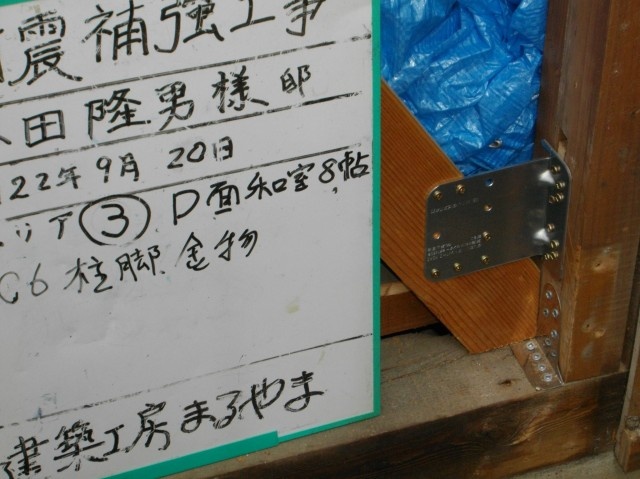 震補強工事
田隆男様邸
22年9月20日
リア③D面和室8帖
C6柱脚金物
建築工房まるやま